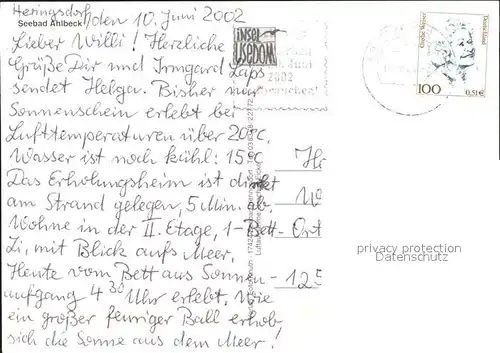 Heringsdorf, den 10. Juni 2002
Seebad Ahlbeck
Lieber Willi! Herzliche
Grüße Dir und Irmgard Laps
sendet Helga. Bisher nur
Sonnenschein erlebt bei
Lufttemperaturen über 20°C.
Wasser ist noch kühl: 15°C
Das Erholungsheim ist direkt
am Strand gelegen, 5 Min. ab.
Wohne in der II. Etage, 1-Bett-
Zi, mit Blick aufs Meer.
Heute vom Bett aus Sonnen-
aufgang 4 30 Uhr erlebt. Wie
ein großer feuriger Ball erhob
sich die Sonne aus dem Meer!
insel
USEDOM
Juni
2002
Deutschland
100
0,51€
Ort
125
privacy protection
Datenschutz